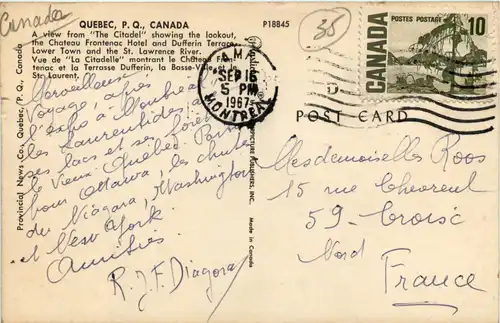 Canada
QUEBEC, P. Q., CANADA
P18845
A view from "The Citadel" showing the lookout,
the Chateau Frontenac Hotel and Dufferin Terrace,
Lower Town and the St. Lawrence River.
Vue de "La Citadelle" montrant le Château Fron-
tenac et la Terrasse Dufferin, la Basse-Ville et le
St. Laurent.
35
POSTES POSTAGE
10
CANADA
SEP 16
5 PM
1967
MONTREAL
POST CARD
Provincial News Co., Quebec, P.Q., Canada
Made in Canada
Merveilleux
voyage, après
l'expo à Montréal
les Laurentides
ses lacs et ses forêts
le vieux Québec
pour Ottawa, les chutes
du Niagara, Washington
et New York
Amitiés
R.J.F. Diagora
Mesdemoiselles Roos
15 rue Chevreul
59 - Croix
Nord
France